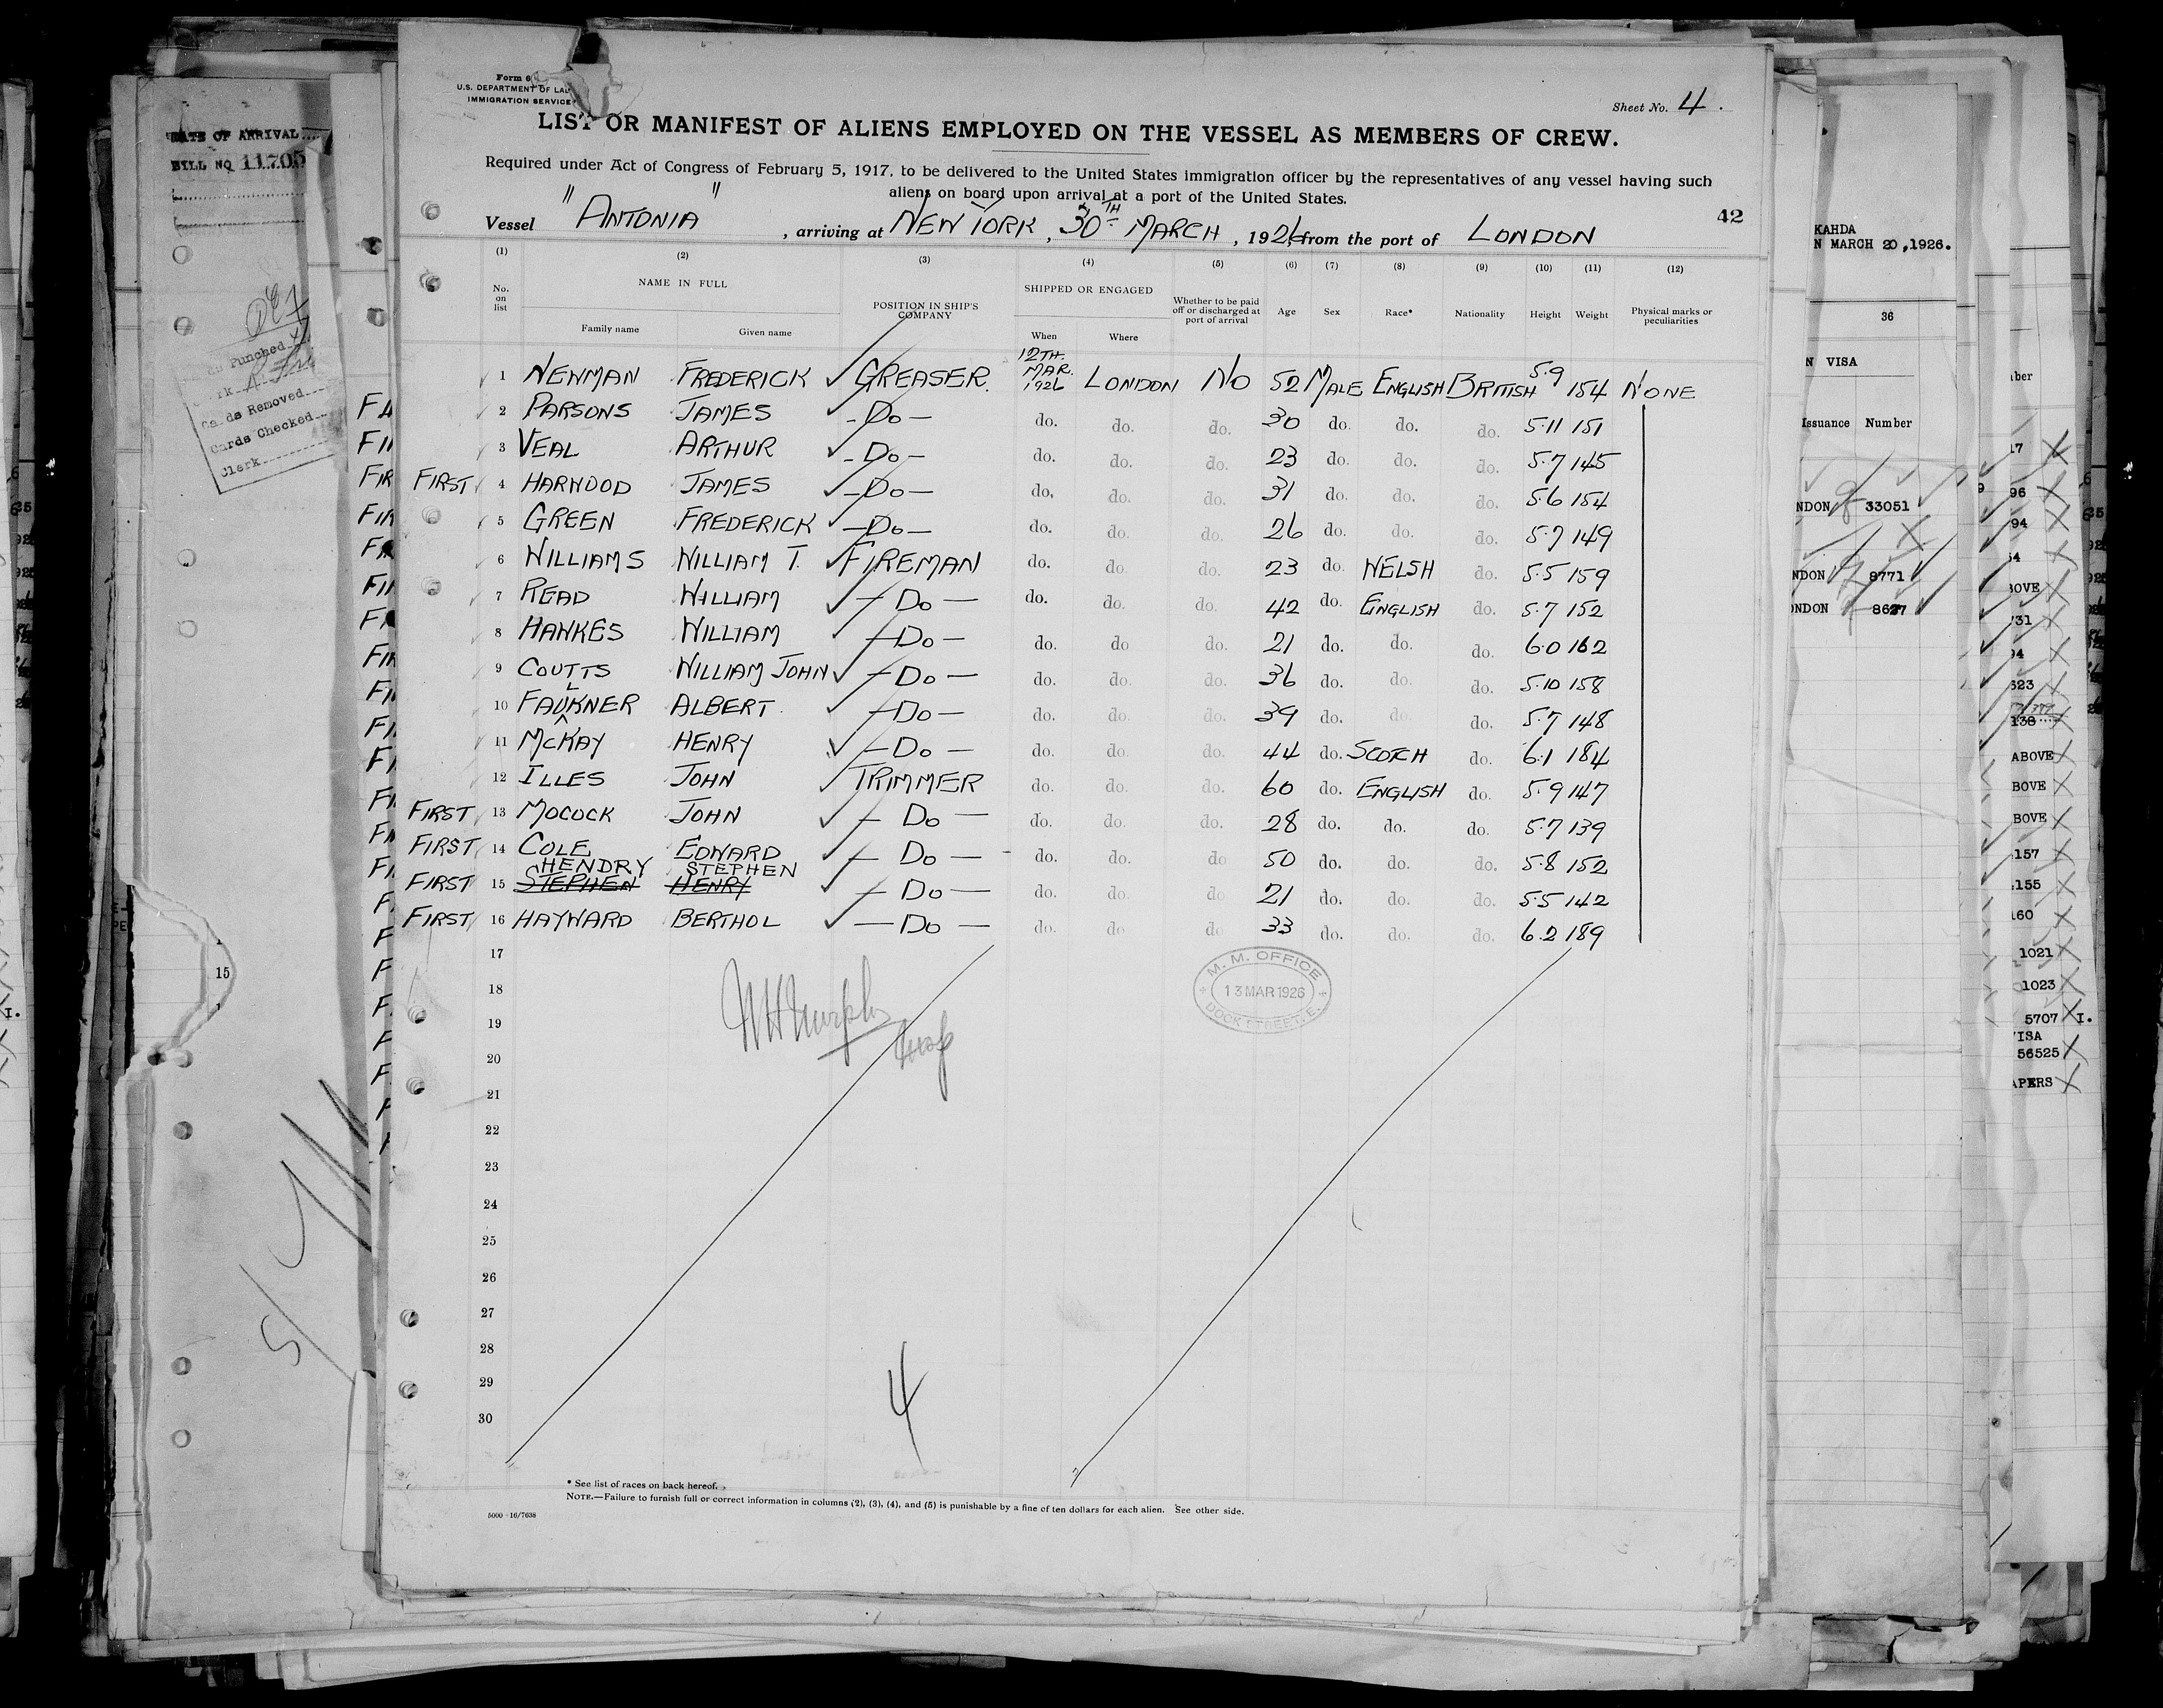 Form 6
U.S. DEPARTMENT OF LAB
IMMIGRATION SERVICE
Sheet No. 4.
LIST OR MANIFEST OF ALIENS EMPLOYED ON THE VESSEL AS MEMBERS OF CREW.
Required under Act of Congress of February 5, 1917, to be delivered to the United States immigration officer by the representatives of any vessel having such
aliens on board upon arrival at a port of the United States.
42
Vessel "ANTONIA", arriving at NEW YORK, 30TH MARCH, 1926, from the port of LONDON
(1) (2) (3) (4) (5) (6) (7) (8) (9) (10) (11) (12)
No. on list NAME IN FULL POSITION IN SHIP'S COMPANY SHIPPED OR ENGAGED Whether to be paid off or discharged at port of arrival Age Sex Race* Nationality Height Weight Physical marks or peculiarities
Family name Given name When Where
1 NEWMAN FREDERICK GREASER. 12TH. MAR. 1926 LONDON NO 52 MALE ENGLISH BRITISH 5.9 154 NONE
2 PARSONS JAMES - DO - do. do. do. 30 do. do. do. 5.11 151
3 VEAL ARTHUR - DO - do. do. do. 23 do. do. do. 5.7 145
FIRST 4 HARWOOD JAMES - DO - do. do. do. 31 do. do. do. 5.6 154
5 GREEN FREDERICK - DO - do. do. do. 26 do. do. do. 5.7 149
6 WILLIAMS WILLIAM T. FIREMAN do. do. do. 23 do. WELSH do. 5.5 159
7 READ WILLIAM - DO - do. do. do. 42 do. ENGLISH do. 5.7 152
8 HAWKES WILLIAM - DO - do. do do. 21 do. do. do. 6.0 162
9 COUTTS WILLIAM JOHN - DO - do. do. do. 36 do. do. do. 5.10 158
10 FAULKNER ALBERT. - DO - do. do. do. 39 do. do. do. 5.7 148
11 MCKAY HENRY - DO - do. do. do. 44 do. SCOTCH do. 6.1 184
12 ILLES JOHN TRIMMER do. do. do. 60 do. ENGLISH do. 5.9 147
FIRST 13 MOCOCK JOHN - DO - do. do. do. 28 do. do. do. 5.7 139
FIRST 14 COLE EDWARD - DO - do. do. do 50 do. do. do. 5.8 152
HENDRY STEPHEN
FIRST 15 STEPHEN HENRY - DO - do. do. do 21 do. do. do. 5.5 142
FIRST 16 HAYWARD BERTHOL - DO - do. do do 33 do. do. do. 6.2 189
17
18
19
20
21
22
23
24
25
26
27
28
29
30
M. M. OFFICE
13 MAR 1926
DOCK STREET. E.
4
* See list of races on back hereof.
NOTE.—Failure to furnish full or correct information in columns (2), (3), (4), and (5) is punishable by a fine of ten dollars for each alien. See other side.
5000-16/7638
DATE OF ARRIVAL
BILL NO 11705
Punched
Cards Removed
Cards Checked
Clerk
15
KAHDA
N MARCH 20,1926.
36
N VISA
Issuance Number
NDON 33051
NDON 8771
ONDON 8627
ber
17
96
94
BOVE
31
94
623
138
ABOVE
BOVE
BOVE
157
155
160
1021
1023
5707 I.
VISA
56525
APERS